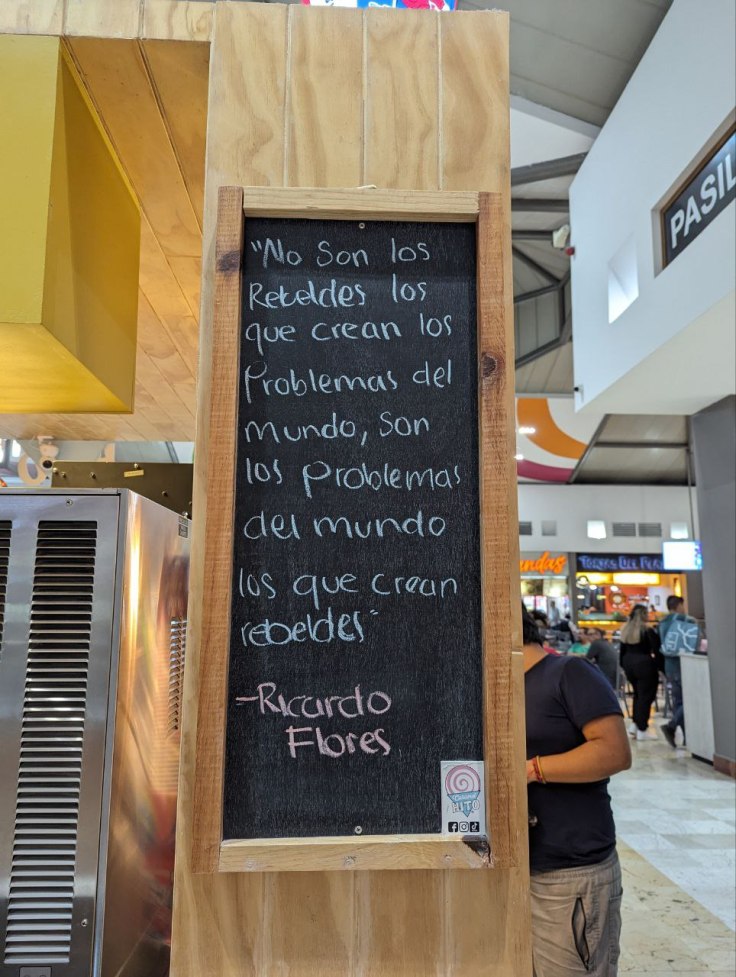 "No son los
Rebeldes los
que crean los
Problemas del
mundo, son
los problemas
del mundo
los que crean
rebeldes"
-Ricardo
Flores
HITO
PASIL
TORTAS DEL